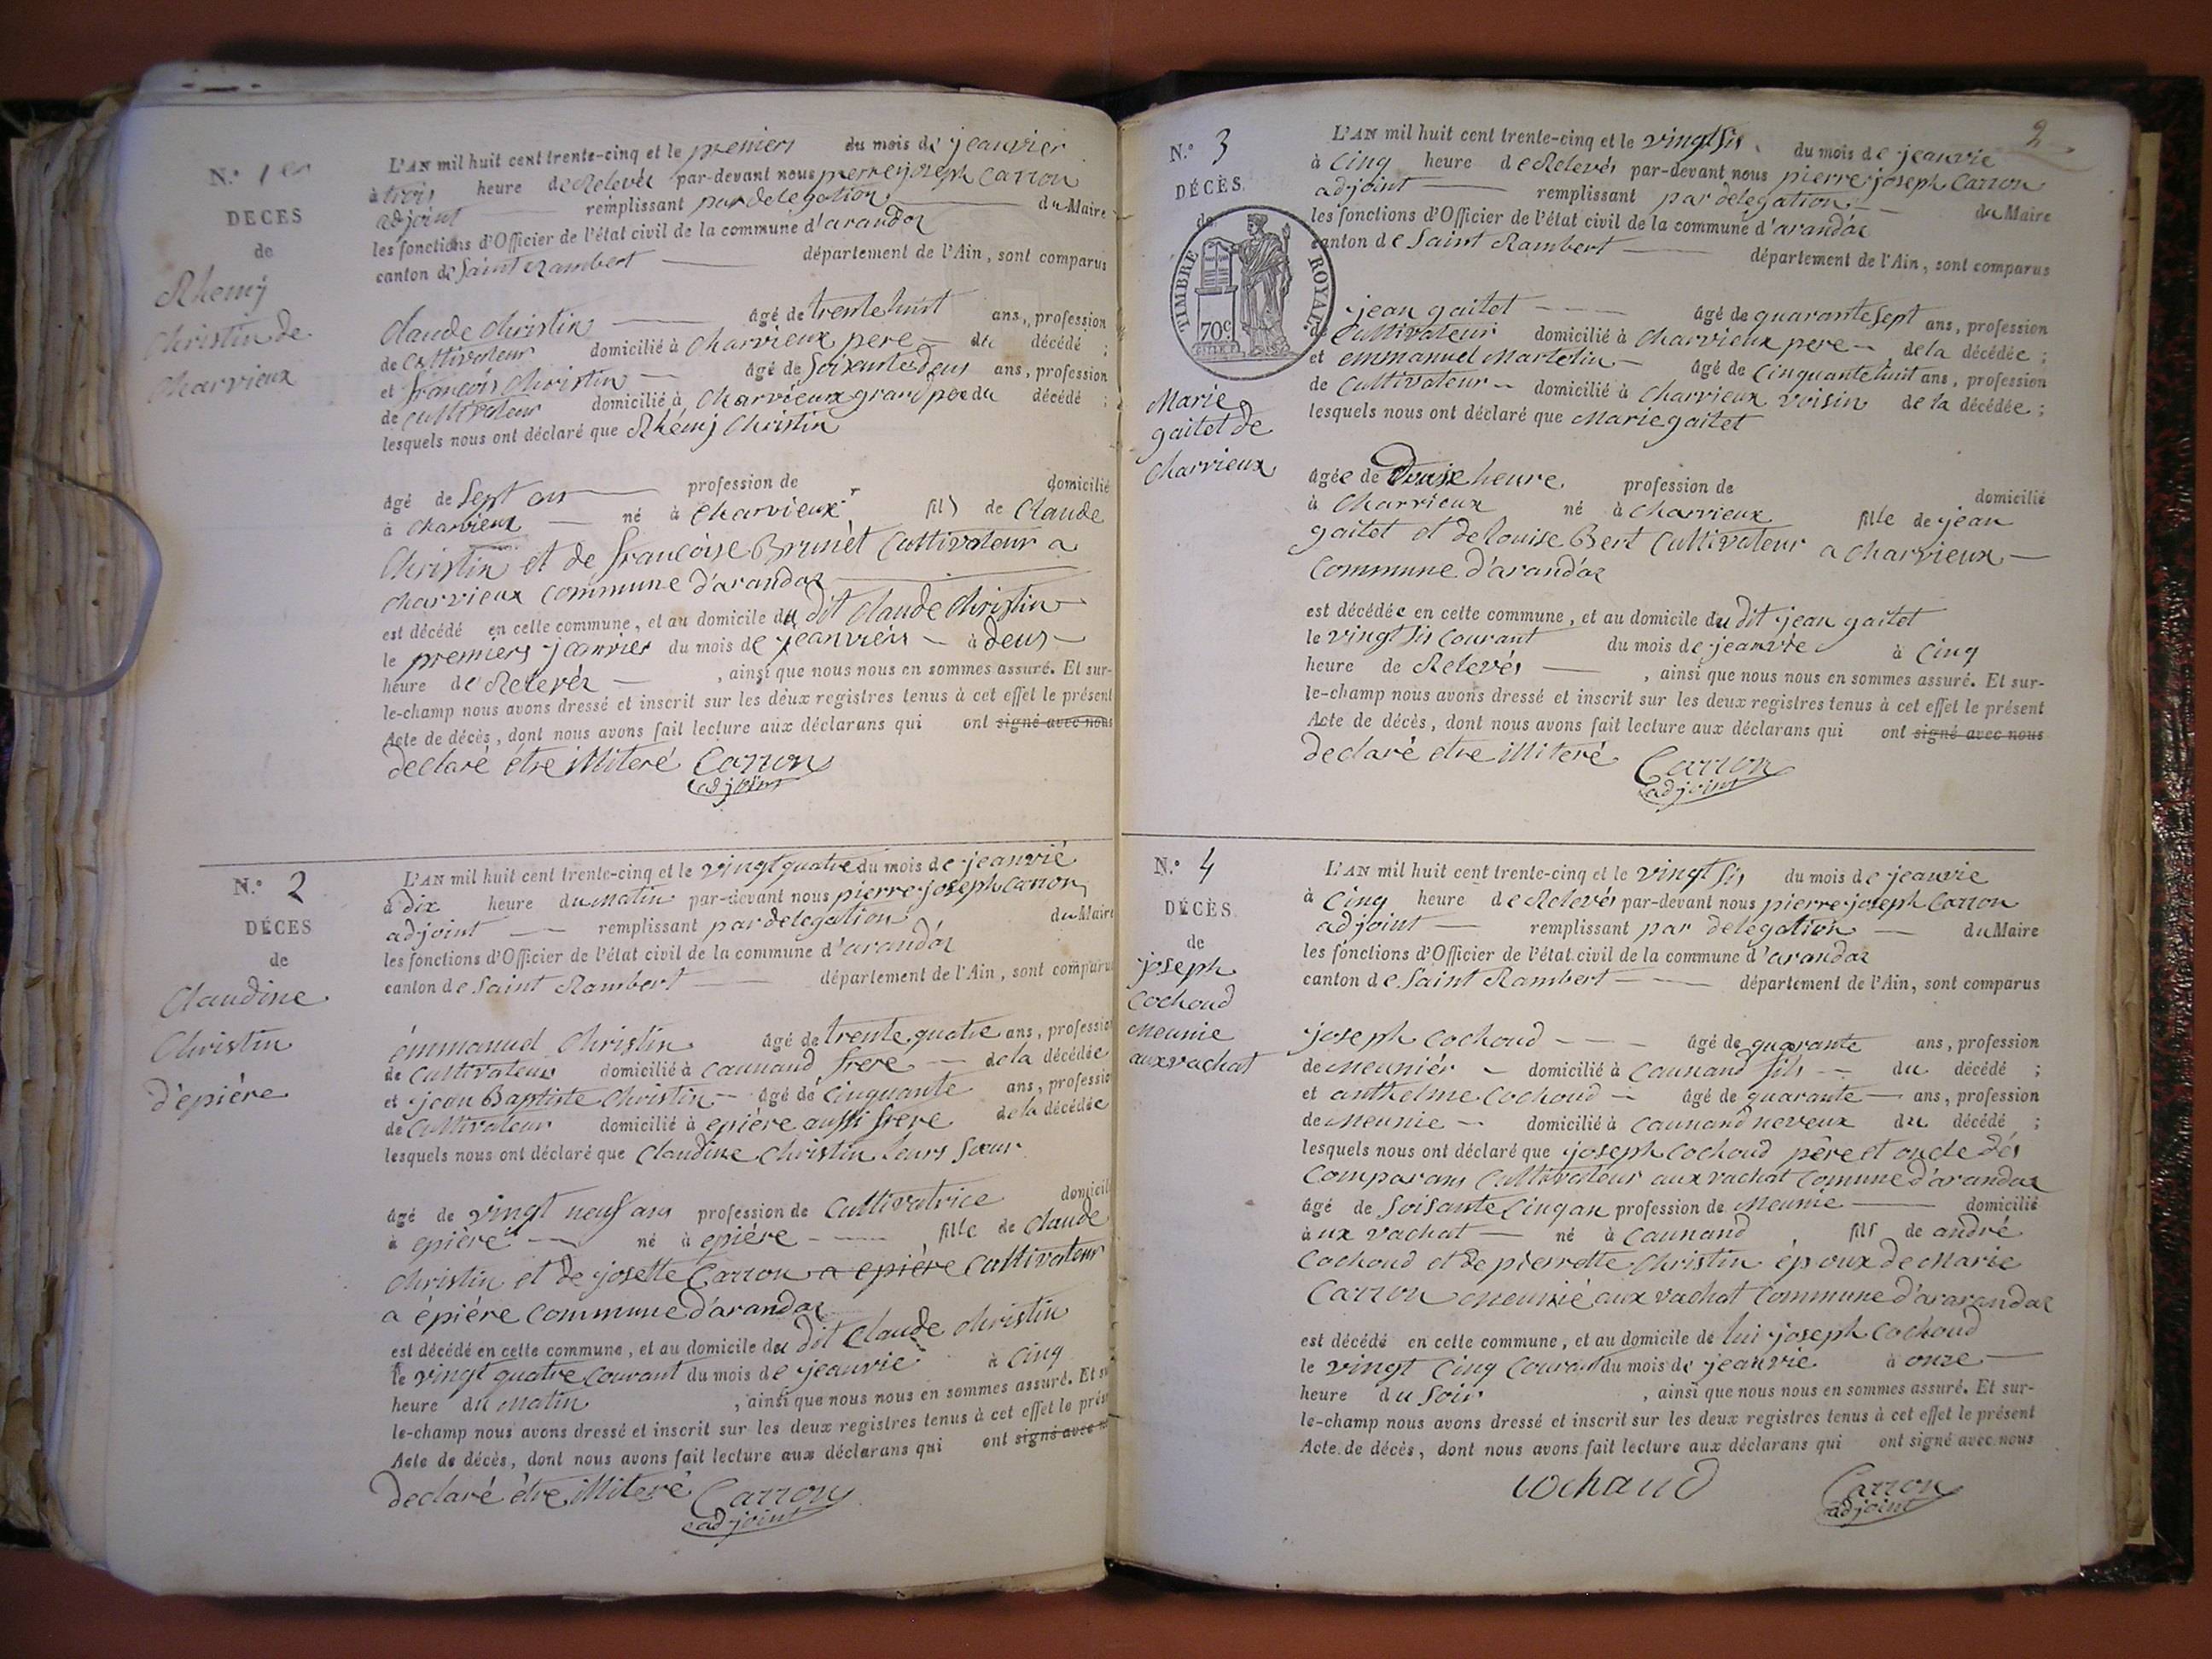 N.° 1er
DECES
de
Rhemj
Christin de
Charvieux
L'AN mil huit cent trente-cinq et le premiers du mois de jeanvier
à trois heure de Relevés par-devant nous pierre joseph Carron
adjoint remplissant par delegation du Maire
les fonctions d'Officier de l'état civil de la commune d'arandaz
canton de Saint Rambert département de l'Ain, sont comparus
Claude Christin âgé de trente huit ans, profession
de Cultivateur domicilié à Charvieux pere du décédé ;
et françois Christin âgé de Soixante deus ans, profession
de Cultivateur domicilié à Charvieux grand pere du décédé ;
lesquels nous ont déclaré que Rhémj Christin
âgé de Sept ans profession de domicilié
à Charvieux né à Charvieux fils de Claude
Christin et de françoise Brunet Cultivateur a
Charvieux Commune d'arandaz
est décédé en cette commune, et au domicile du dit Claude Christin
le premiers jeanvier du mois de jeanviers à deus
heure de Relevés , ainsi que nous nous en sommes assuré. Et sur-
le-champ nous avons dressé et inscrit sur les deux registres tenus à cet effet le présent
Acte de décès, dont nous avons fait lecture aux déclarans qui ont signé avec nous
declaré étre illiteré Carron
adjoint
N.° 2
DÉCES
de
Claudine
Christin
d'épiére
L'AN mil huit cent trente-cinq et le vingt quatre du mois de jeanvié
à dix heure du matin par-devant nous pierre joseph Carron
adjoint remplissant par delegation du Maire
les fonctions d'Officier de l'état civil de la commune d'arandaz
canton de Saint Rambert département de l'Ain, sont comparus
émmanuel Christin âgé de trente quatre ans, profession
de Cultivateur domicilié à Caunand frere de la décédée
et jean Baptiste Christin âgé de Cinquante ans, profession
de Cultivateur domicilié à epiére aussi frere de la décédée
lesquels nous ont déclaré que Claudine Christin leurs Soeur
âgé de vingt neuf ans profession de Cultivatrice domicilié
à epiére né à epiére fille de Claude
Christin et de josette Carron a epiére Cultivateur
a épiére Commune d'arandaz
est décédé en cette commune, et au domicile du dit Claude Christin
le vingt quatre Courant du mois de jeanvie à Cinq
heure du matin , ainsi que nous nous en sommes assuré. Et sur-
le-champ nous avons dressé et inscrit sur les deux registres tenus à cet effet le présent
Acte de décès, dont nous avons fait lecture aux déclarans qui ont signé avec nous
declaré étre illiteré Carron
adjoint
2
N.° 3
DÉCÈS
de
TIMBRE ROYAL
70c
Marie
gaitet de
Charvieux
L'AN mil huit cent trente-cinq et le vingt sis du mois de jeanvie
à Cinq heure de Relevés par-devant nous pierre joseph Carron
adjoint remplissant par delegation du Maire
les fonctions d'Officier de l'état civil de la commune d'arandaz
canton de Saint Rambert département de l'Ain, sont comparus
jean gaitet âgé de quarante sept ans, profession
de Cultivateur domicilié à Charvieux pere de la décédée ;
et emmanuel Martelin âgé de Cinquante huit ans, profession
de Cultivateur domicilié à Charvieux voisin de la décédée ;
lesquels nous ont déclaré que Marie gaitet
âgée de heure profession de domicilié
à Charvieux né à Charvieux fille de jean
gaitet et de louise Bert Cultivateur a Charvieux
Commune d'arandaz
est décédée en cette commune, et au domicile du dit jean gaitet
le vingt sis Courant du mois de jeanvie à Cinq
heure de Relevés , ainsi que nous nous en sommes assuré. Et sur-
le-champ nous avons dressé et inscrit sur les deux registres tenus à cet effet le présent
Acte de décès, dont nous avons fait lecture aux déclarans qui ont signé avec nous
declaré etre illiteré Carron
adjoint
N.° 4
DÉCÈS
de
joseph
Cochoud
Meunie
aux vachat
L'AN mil huit cent trente-cinq et le vingt sis du mois de jeanvie
à Cinq heure de Relevés par-devant nous pierre joseph Carron
adjoint remplissant par delegation du Maire
les fonctions d'Officier de l'état civil de la commune d'arandaz
canton de Saint Rambert département de l'Ain, sont comparus
joseph Cochoud âgé de quarante ans, profession
de Meuniér domicilié à Caunand fils du décédé ;
et anthelme Cochoud âgé de quarante ans, profession
de Meunie domicilié à Caunand neveux du décédé ;
lesquels nous ont déclaré que joseph Cochoud pére et oncle dés
Comparans Cultivateur aux vachat Comune d'arandaz
âgé de Soisante Cinq an profession de Meunie domicilié
à ux vachat né à Caunand fils de andré
Cochoud et de pierrette Christin époux de Marie
Carron Meunié aux vachat Commune d'ararandaz
est décédé en cette commune, et au domicile de lui joseph Cochoud
le vingt Cinq Courant du mois de jeanvie à onze
heure du Soir , ainsi que nous nous en sommes assuré. Et sur-
le-champ nous avons dressé et inscrit sur les deux registres tenus à cet effet le présent
Acte de décès, dont nous avons fait lecture aux déclarans qui ont signé avec nous
Cochaud Carron
adjoint